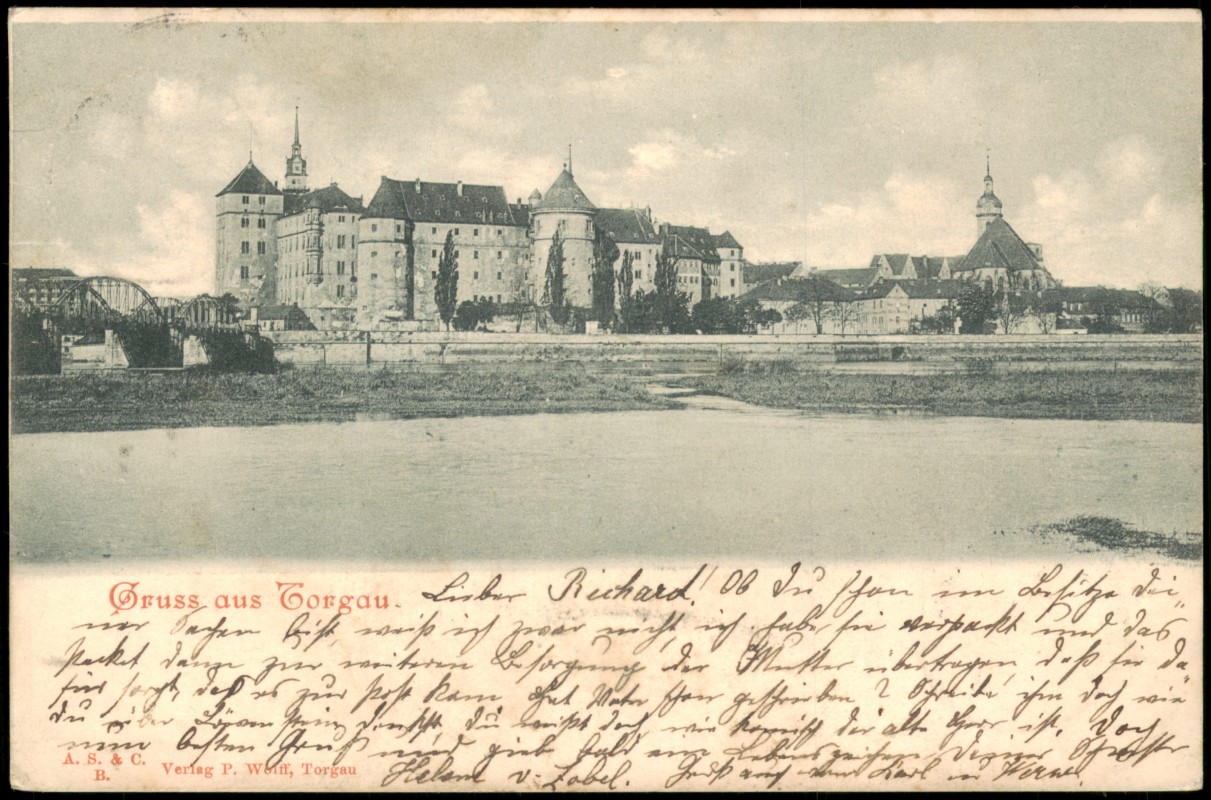 Gruss aus Torgau. Lieber Richard! Ob Du schon im Besitze Dei-
ner Sachen bist, weiß ich zwar nicht, ich habe sie verpackt und das
Packet dann zur weiteren Besorgung der Mutter übertragen, daß sie da
für sorgt, daß es zur Post kam. Hat Vater schon geschrieben? Schreibe ihm doch wie
Du über Löwenstein denkst, Du weißt doch, wie komisch der alte Herr ist. Doch
nun besten Gruß und gieb bald ein Lebenszeichen Deiner Schwester
Helene v. Zobel. Gruß auch von Karl u. Werner.
A. S. & C.
B. Verlag P. Wolff, Torgau